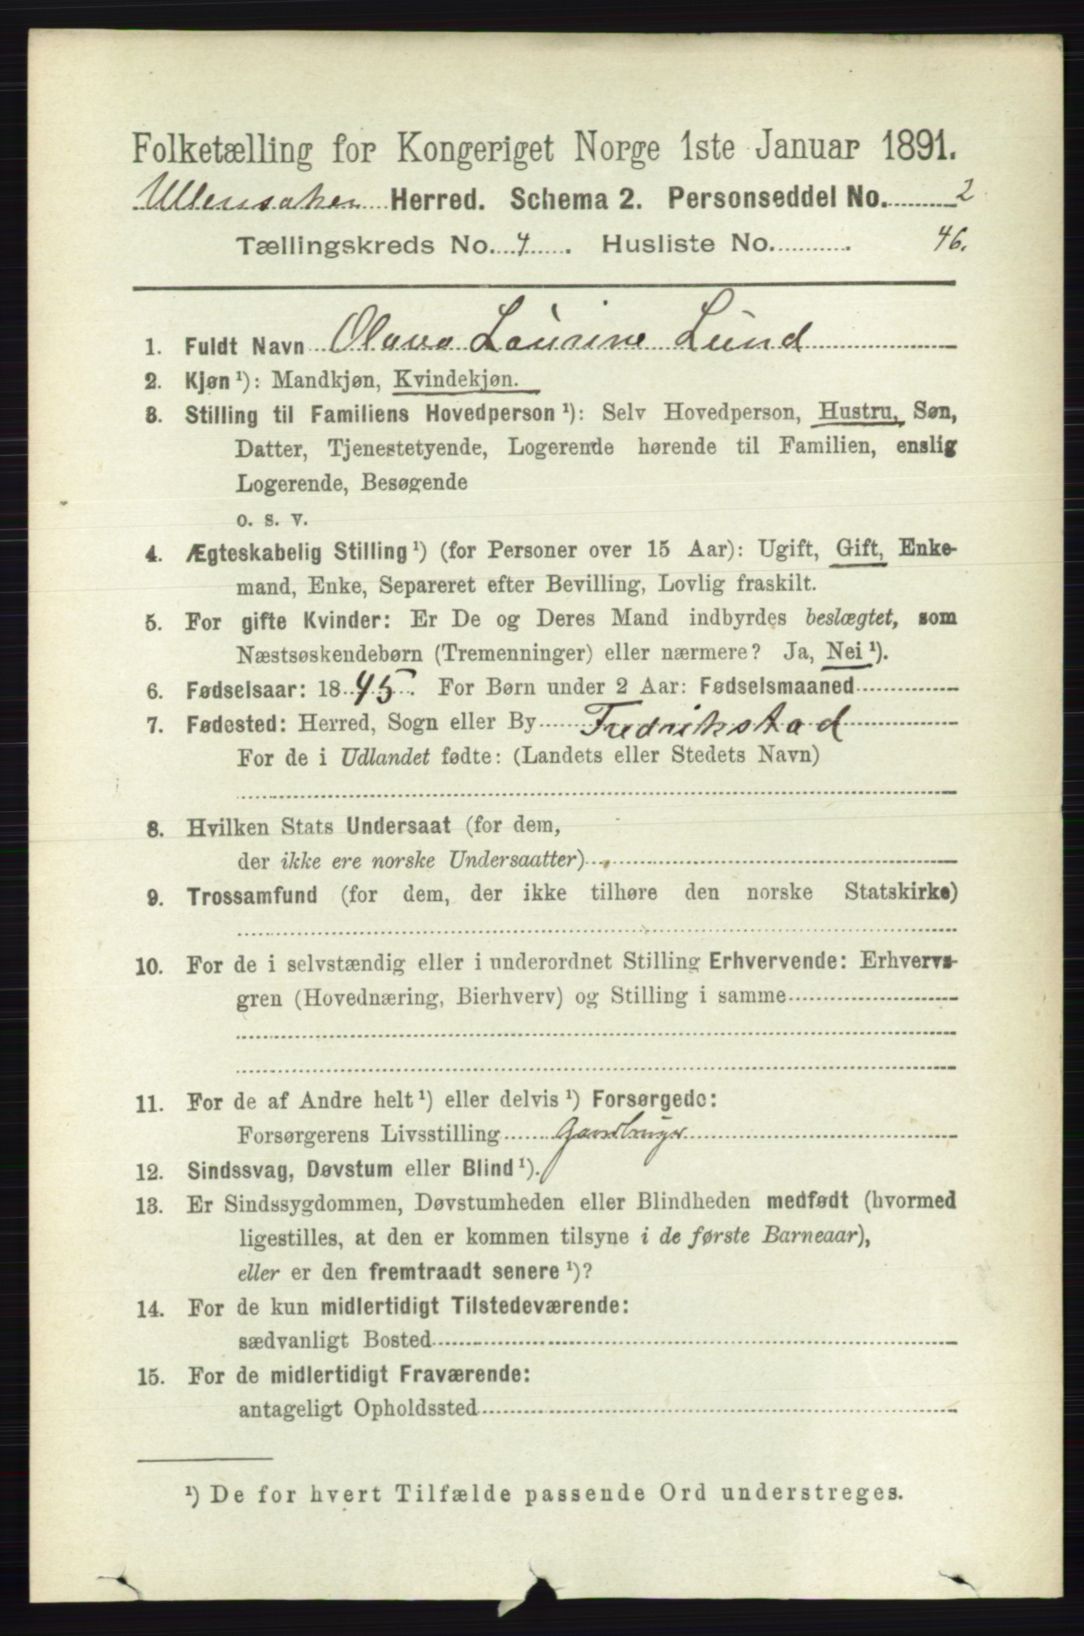 Folketælling for Kongeriget Norge 1ste Januar 1891.
Ullensaker Herred. Schema 2. Personseddel No. 2
Tællingskreds No. 4. Husliste No. 46.
1. Fuldt Navn Olava Laurine Lund
2. Kjøn ¹): Mandkjøn, Kvindekjøn.
3. Stilling til Familiens Hovedperson ¹): Selv Hovedperson, Hustru, Søn,
Datter, Tjenestetyende, Logerende hørende til Familien, enslig
Logerende, Besøgende
o. s. v.
4. Ægteskabelig Stilling ¹) (for Personer over 15 Aar): Ugift, Gift, Enke-
mand, Enke, Separeret efter Bevilling, Lovlig fraskilt.
5. For gifte Kvinder: Er De og Deres Mand indbyrdes beslægtet, som
Næstsøskendebørn (Tremenninger) eller nærmere? Ja, Nei ¹).
6. Fødselsaar: 1845. For Børn under 2 Aar: Fødselsmaaned
7. Fødested: Herred, Sogn eller By Fredrikstad
For de i Udlandet fødte: (Landets eller Stedets Navn)
8. Hvilken Stats Undersaat (for dem,
der ikke ere norske Undersaatter)
9. Trossamfund (for dem, der ikke tilhøre den norske Statskirke)
10. For de i selvstændig eller i underordnet Stilling Erhvervende: Erhvervs-
gren (Hovednæring, Bierhverv) og Stilling i samme
11. For de af Andre helt ¹) eller delvis ¹) Forsørgede:
Forsørgerens Livsstilling Gaardbruger
12. Sindssvag, Døvstum eller Blind ¹).
13. Er Sindssygdommen, Døvstumheden eller Blindheden medfødt (hvormed
ligestilles, at den er kommen tilsyne i de første Barneaar),
eller er den fremtraadt senere ¹)?
14. For de kun midlertidigt Tilstedeværende:
sædvanligt Bosted
15. For de midlertidigt Fraværende:
antageligt Opholdssted
¹) De for hvert Tilfælde passende Ord understreges.